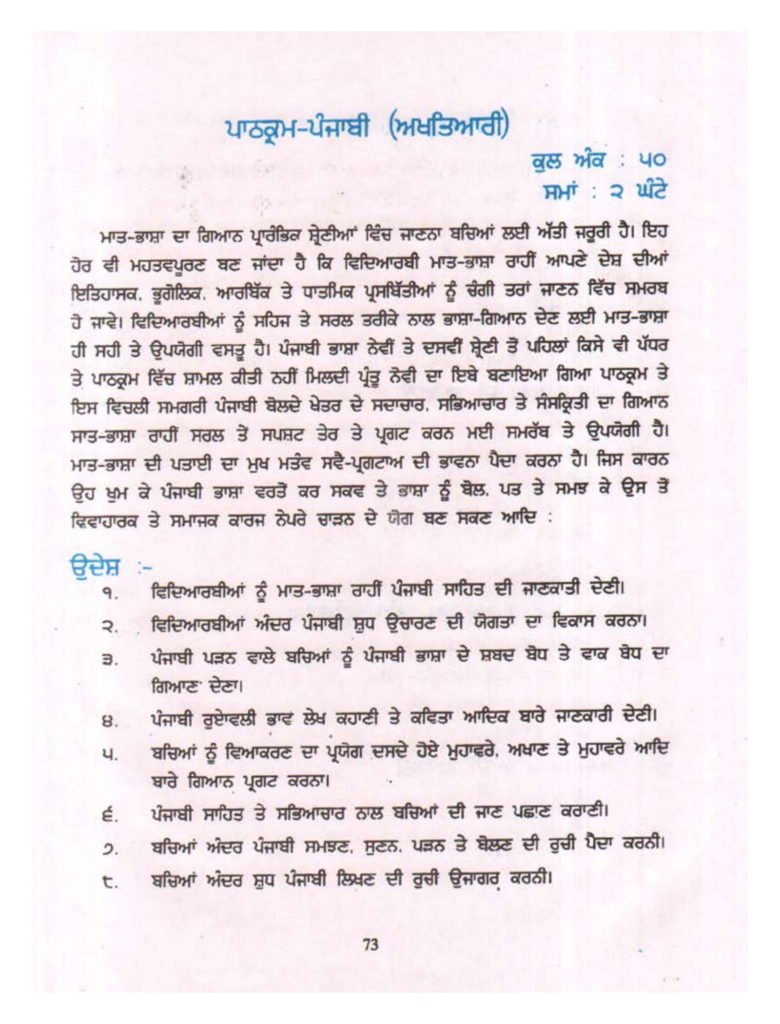 ਪਾਠਕ੍ਰਮ-ਪੰਜਾਬੀ (ਅਖਤਿਆਰੀ)
ਕੁਲ ਅੰਕ : ੫੦
ਸਮਾਂ : ੨ ਘੰਟੇ
ਮਾਤ-ਭਾਸ਼ਾ ਦਾ ਗਿਆਨ ਪ੍ਰਾਰੰਭਿਕ ਸ਼੍ਰੇਣੀਆਂ ਵਿੱਚ ਜਾਣਨਾ ਬਚਿਆਂ ਲਈ ਅੱਤੀ ਜਰੂਰੀ ਹੈ। ਇਹ
ਹੋਰ ਵੀ ਮਹਤਵਪੂਰਣ ਬਣ ਜਾਂਦਾ ਹੈ ਕਿ ਵਿਦਿਆਰਬੀ ਮਾਤ-ਭਾਸ਼ਾ ਰਾਹੀਂ ਆਪਣੇ ਦੇਸ਼ ਦੀਆਂ
ਇਤਿਹਾਸਕ, ਭੂਗੋਲਿਕ, ਆਰਬਿੱਕ ਤੇ ਧਾਤਮਿਕ ਪ੍ਰਸਬਿੱਤੀਆਂ ਨੂੰ ਚੰਗੀ ਤਰਾਂ ਜਾਣਨ ਵਿੱਚ ਸਮਰਬ
ਹੋ ਜਾਵੇ। ਵਿਦਿਆਰਬੀਆਂ ਨੂੰ ਸਹਿਜ ਤੇ ਸਰਲ ਤਰੀਕੇ ਨਾਲ ਭਾਸ਼ਾ-ਗਿਆਨ ਦੇਣ ਲਈ ਮਾਤ-ਭਾਸ਼ਾ
ਹੀ ਸਹੀ ਤੇ ਉਪਯੋਗੀ ਵਸਤੂ ਹੈ। ਪੰਜਾਬੀ ਭਾਸ਼ਾ ਨੇਵੀਂ ਤੇ ਦਸਵੀਂ ਸ਼੍ਰੇਣੀ ਤੋਂ ਪਹਿਲਾਂ ਕਿਸੇ ਵੀ ਪੱਧਰ
ਤੇ ਪਾਠਕ੍ਰਮ ਵਿੱਚ ਸ਼ਾਮਲ ਕੀਤੀ ਨਹੀਂ ਮਿਲਦੀ ਪ੍ਰੰਤੂ ਨੋਵੀ ਦਾ ਇਬੇ ਬਣਾਇਆ ਗਿਆ ਪਾਠਕ੍ਰਮ ਤੇ
ਇਸ ਵਿਚਲੀ ਸਮਗਰੀ ਪੰਜਾਬੀ ਬੋਲਦੇ ਖੇਤਰ ਦੇ ਸਦਾਚਾਰ, ਸਭਿਆਚਾਰ ਤੇ ਸੰਸਕ੍ਰਿਤੀ ਦਾ ਗਿਆਨ
ਸਾਤ-ਭਾਸ਼ਾ ਰਾਹੀਂ ਸਰਲ ਤੋਂ ਸਪਸ਼ਟ ਤੇਰ ਤੇ ਪ੍ਰਗਟ ਕਰਨ ਮਈ ਸਮਰੱਬ ਤੇ ਉਪਯੋਗੀ ਹੈ।
ਮਾਤ-ਭਾਸ਼ਾ ਦੀ ਪਤਾਈ ਦਾ ਮੁਖ ਮਤੰਵ ਸਵੈ-ਪ੍ਰਗਟਾਅ ਦੀ ਭਾਵਨਾ ਪੈਦਾ ਕਰਨਾ ਹੈ। ਜਿਸ ਕਾਰਨ
ਉਹ ਖੁਮ ਕੇ ਪੰਜਾਬੀ ਭਾਸ਼ਾ ਵਰਤੋਂ ਕਰ ਸਕਵ ਤੇ ਭਾਸ਼ਾ ਨੂੰ ਬੋਲ, ਪਤ ਤੇ ਸਮਝ ਕੇ ਉਸ ਤੋਂ
ਵਿਵਾਹਾਰਕ ਤੇ ਸਮਾਜਕ ਕਾਰਜ ਨੇਪਰੇ ਚਾੜਨ ਦੇ ਯੋਗ ਬਣ ਸਕਣ ਆਦਿ :
ਉਦੇਸ਼ :-
੧. ਵਿਦਿਆਰਬੀਆਂ ਨੂੰ ਮਾਤ-ਭਾਸ਼ਾ ਰਾਹੀਂ ਪੰਜਾਬੀ ਸਾਹਿਤ ਦੀ ਜਾਣਕਾਤੀ ਦੇਣੀ।
੨. ਵਿਦਿਆਰਬੀਆਂ ਅੰਦਰ ਪੰਜਾਬੀ ਸ਼ੁਧ ਉਚਾਰਣ ਦੀ ਯੋਗਤਾ ਦਾ ਵਿਕਾਸ ਕਰਨਾ।
੩. ਪੰਜਾਬੀ ਪੜਨ ਵਾਲੇ ਬਚਿਆਂ ਨੂੰ ਪੰਜਾਬੀ ਭਾਸ਼ਾ ਦੇ ਸ਼ਬਦ ਬੋਧ ਤੇ ਵਾਕ ਬੋਧ ਦਾ
ਗਿਆਣ ਦੇਣਾ।
੪. ਪੰਜਾਬੀ ਰੁਏਾਵਲੀ ਭਾਵ ਲੇਖ ਕਹਾਣੀ ਤੇ ਕਵਿਤਾ ਆਦਿਕ ਬਾਰੇ ਜਾਣਕਾਰੀ ਦੇਣੀ।
੫. ਬਚਿਆਂ ਨੂੰ ਵਿਆਕਰਣ ਦਾ ਪ੍ਰਯੋਗ ਦਸਦੇ ਹੋਏ ਮੁਹਾਵਰੇ, ਅਖਾਣ ਤੇ ਮੁਹਾਵਰੇ ਆਦਿ
ਬਾਰੇ ਗਿਆਨ ਪ੍ਰਗਟ ਕਰਨਾ।
੬. ਪੰਜਾਬੀ ਸਾਹਿਤ ਤੇ ਸਭਿਆਚਾਰ ਨਾਲ ਬਚਿਆਂ ਦੀ ਜਾਣ ਪਛਾਣ ਕਰਾਣੀ।
੭. ਬਚਿਆਂ ਅੰਦਰ ਪੰਜਾਬੀ ਸਮਝਣ, ਸੁਣਨ, ਪੜਨ ਤੇ ਬੋਲਣ ਦੀ ਰੁਚੀ ਪੈਦਾ ਕਰਨੀ।
੮. ਬਚਿਆਂ ਅੰਦਰ ਸ਼ੁਧ ਪੰਜਾਬੀ ਲਿਖਣ ਦੀ ਰੁਚੀ ਉਜਾਗਰ ਕਰਨੀ।
73